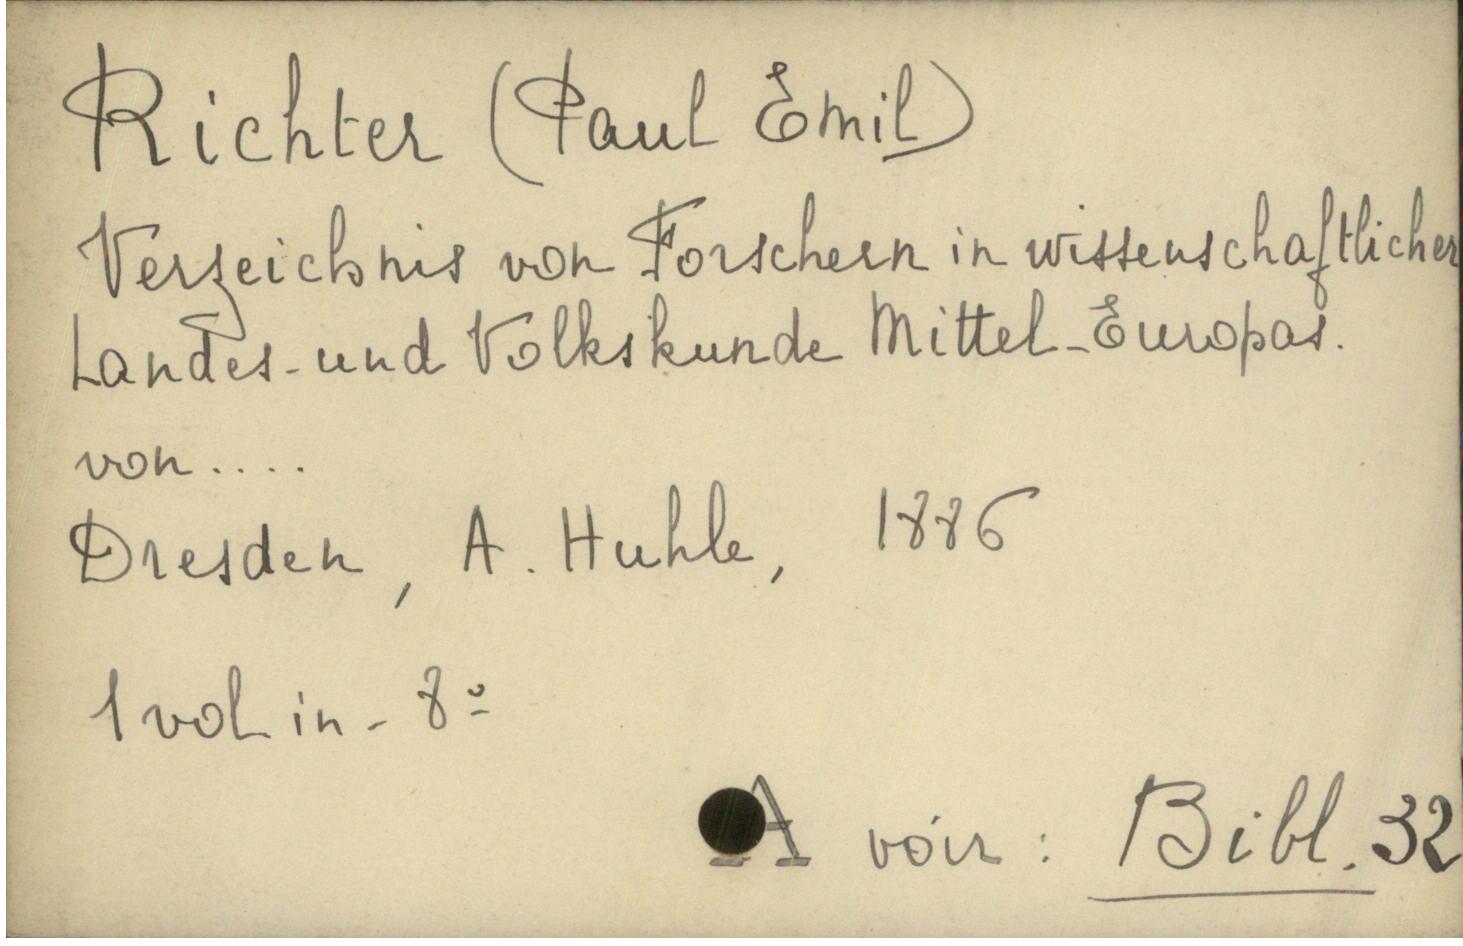 Richter (Paul Emil)
Verzeichnis von Forschern in wissenschaftlicher
Landes-und Volkskunde Mittel-Europas.
von....
Dresden, A. Huhle, 1886
1 vol in-8º
A voir : Bibl. 32